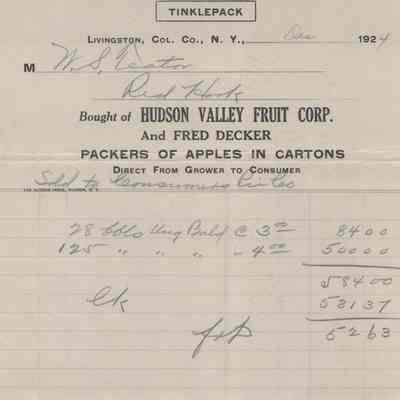 TINKLEPACK
LIVINGSTON, COL. CO., N. Y., Dec 1924
M W. S. Teator
Red Hook
Bought of HUDSON VALLEY FRUIT CORP.
AND FRED DECKER
PACKERS OF APPLES IN CARTONS
DIRECT FROM GROWER TO CONSUMER
Sold to Consumers
28 bbls Ung Bald @ 3.00 84 00
125 " " " - 4.00 500 00
584 00
531 37
52 63